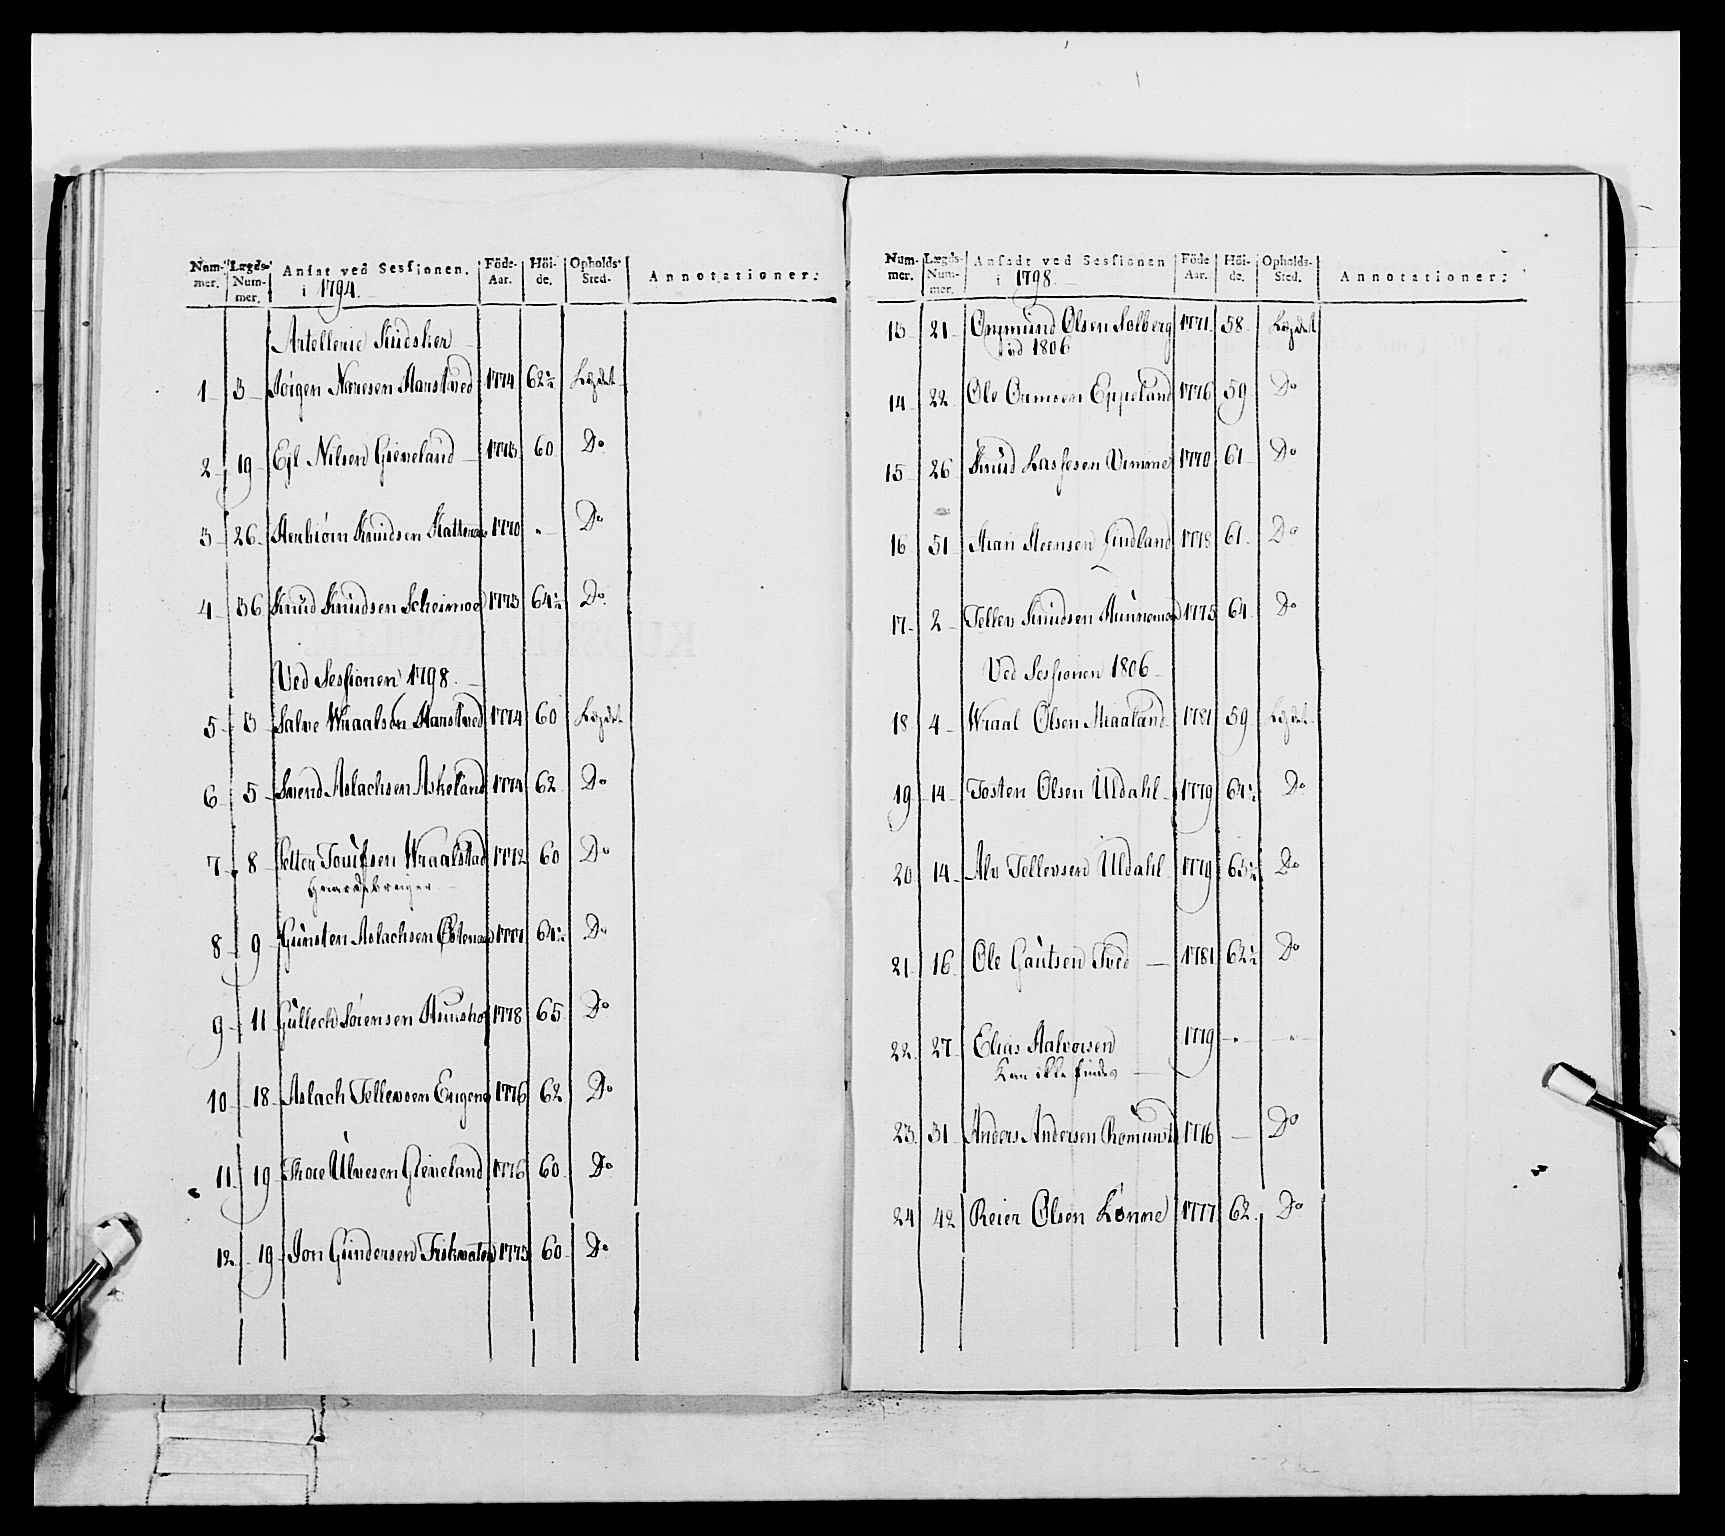 Num-mer. Lægds-Num-mer. Ansat ved Sessionen. i 1794. Föde-Aar. Höi-de. Opholds-Sted. Annotationer:
Artellerie Kudsker
1 3 Jörgen Harstved 1774 62½ Lægdet
2 19 Egl Nilsen Grimeland 1773 60 Do
3 26 Knudsen 1770 " Do
4 36 Knud Knudsen 1773 64½ Do
Ved Sessionen 1798.
5 3 Salve Wraalsen Harstved 1774 60 Lægdet
6 5 Svend Aslachsen Askeland 1774 62 Do
7 8 Wraalstad 1772 60 Do
8 9 Gunsten Aslachsen 1771 Do
9 11 Gullech Sörensen 1778 65 Do
10 18 Aslach Tellevsen 1776 62 Do
11 19 Thore Ulvesen Grimeland 1776 60 Do
12 19 Jon Gundersen 1773 60 Do
Num-mer. Lægds-Num-mer. Ansadt ved Sessionen i 1798. Föde Aar. Höi-de. Opholds-Sted. Annotationer:
13 21 Ommund Olsen Solberg 1771 58 Lægdet
ved 1806
14 22 Ole Ormsen Eppeland 1776 59 Do
15 26 Knud Lassesen Vimme 1770 61 Do
16 51 Steensen Lindland 1778 61 Do
17 2 Tellev Knudsen 1775 64 Do
Ved Sessionen 1806
18 4 Wraal Olsen 1781 59 Lægdet
19 14 Tosten Olsen Uldahl 1779 64½ Do
20 14 Alv Tellevsen Uldahl 1779 63½ Do
21 16 Ole Gautsen Tved 1781 62½ Do
22 27 Elias Halvorsen 1779 " "
Kan ikke findes
23 31 Anders Andersen 1776 — Do
24 42 Reier Olsen Lönne 1777 62 Do